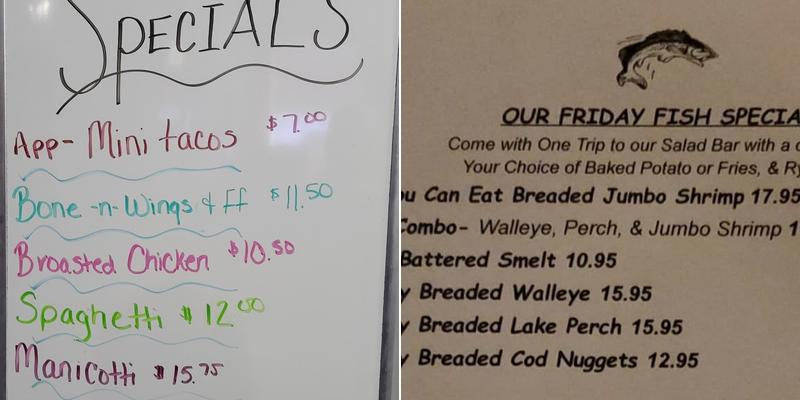 SPECIALS
App- Mini tacos $7.00
Bone-n-Wings & FF $11.50
Broasted Chicken $10.50
Spaghetti $12.00
Manicotti $15.75
OUR FRIDAY FISH
Come with One Trip to our Salad Bar with a
Your Choice of Baked Potato or Fries, &
Can Eat Breaded Jumbo Shrimp 17.95
Combo- Walleye, Perch, & Jumbo Shrimp
Battered Smelt 10.95
Breaded Walleye 15.95
Breaded Lake Perch 15.95
Breaded Cod Nuggets 12.95